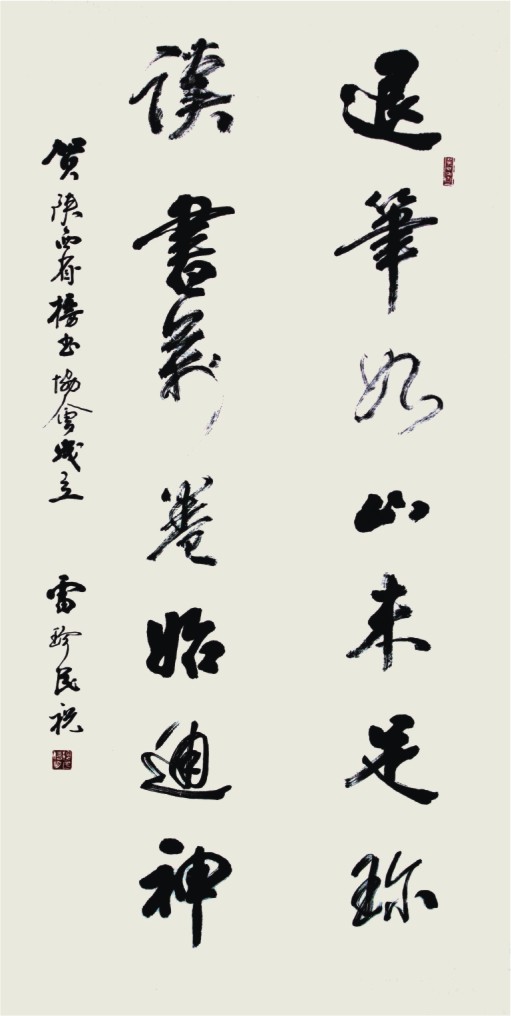 退筆如山未足珎
讀書萬卷始通神
贺陕西省榜书協會成立
雷珍民祝